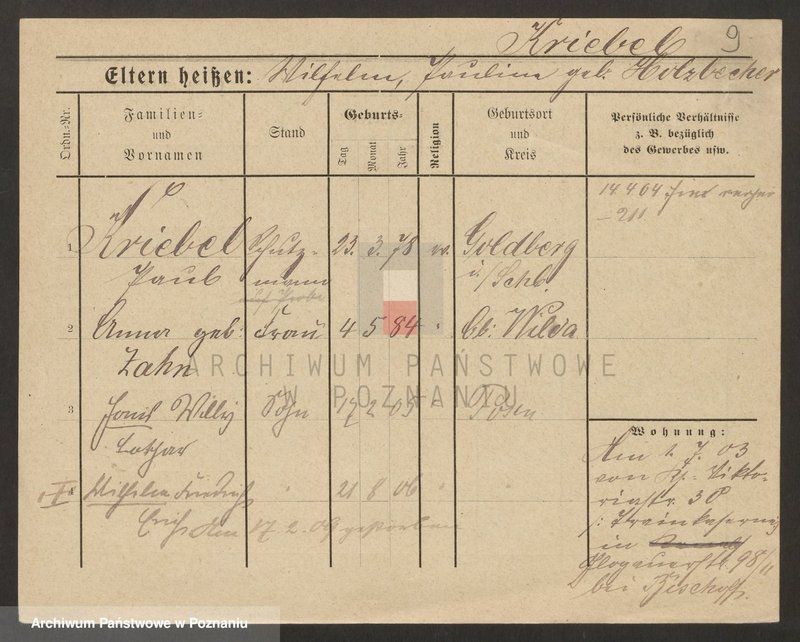 Kriebel 9
Eltern heißen: Wilhelm, Pauline geb. Holzbecher
Ordn.-Nr.
Familien-
und
Vornamen
Stand
Geburts-
Tag
Monat
Jahr
Religion
Geburtsort
und
Kreis
Persönliche Verhältnisse
z. B. bezüglich
des Gewerbes usw.
14 4 04
- 211
1 Kriebel Schutz- 23. 3. 78 ev. Goldberg
Paul mann i/Schl
auf Probe
2 Anna geb: Frau 4 5 84 " Wilda
Zahn
ARCHIWUM PAŃSTWOWE
W POZNANIU
3 Willy Sohn 17 2 05 " Posen
Lothar
4 Wilhelm Friedrich " 21 8 06 " "
Erich am 17 2. 09 gestorben
Wohnung:
Am 1. 7. 03
von Vikto-
riastr. 30
in
Glogauerstr. 98/II
bei Bischoff.
Archiwum Państwowe w Poznaniu